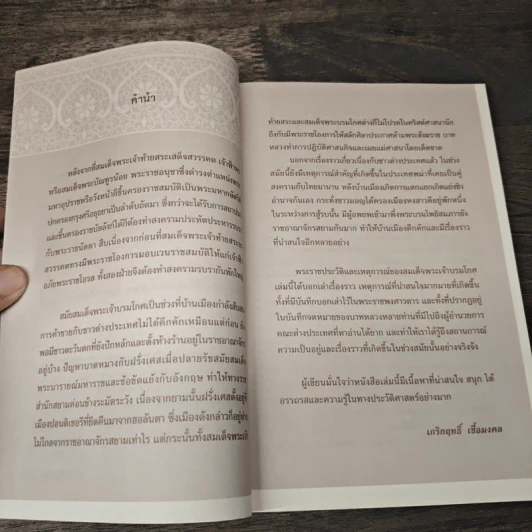 คำนำ
หลังจากที่สมเด็จพระเจ้าท้ายสระเสด็จสวรรคต เจ้าฟ้า
หรือสมเด็จพระบัณฑูรน้อย พระราชอนุชาซึ่งดำรงตำแหน่ง
มหาอุปราชหรือวังหน้าก็ขึ้นครองราชสมบัติเป็นพระมหากษัตริย์
ปกครองกรุงศรีอยุธยาเป็นลำดับถัดมา ซึ่งกว่าจะได้การสถาปนา
และขึ้นครองราชบัลลังก์ได้ก็ต้องทำสงครามประหัตประหาร
กับพระราชนัดดา สืบเนื่องจากก่อนที่สมเด็จพระเจ้าท้ายสระ
สวรรคตทรงมีพระราชโองการมอบเวนราชสมบัติให้แก่เจ้าฟ้า
อภัยพระราชโอรส ทั้งสองฝ่ายจึงต้องทำสงครามรบรากันพักใหญ่
สมัยสมเด็จพระเจ้าบรมโกศเป็นช่วงที่บ้านเมืองกำลังสงบ
การค้าขายกับชาวต่างประเทศไม่ได้คึกคักเหมือนแต่ก่อน
พอมีชาวตะวันตกที่ยังปักหลักและตั้งห้างร้านอยู่ในราชอาณาจักร
อยู่บ้าง ปัญหาบาดหมางกับฝรั่งเศสเมื่อปลายรัชสมัยสมเด็จ
พระนารายณ์มหาราชและข้อขัดแย้งกับอังกฤษ ทำให้ทางราช
สำนักสยามค่อนข้างระมัดระวัง เนื่องจากยามนั้นฝรั่งเศสตั้งอยู่
เมืองปอนดิเชอรีที่ยึดคืนมาจากฮอลันดา ซึ่งเมืองดังกล่าวก็อยู่
ไม่ไกลจากราชอาณาจักรสยามเท่าไร แต่กระนั้นทั้งสมเด็จพระเจ้า
ท้ายสระและสมเด็จพระบรมโกศต่างก็ไม่โปรดในคริสต์ศาสนานัก
ถึงกับมีพระราชโองการให้สลักศิลาประกาศห้ามพระสังฆราช บาท
หลวงทำการปฏิบัติศาสนกิจและเผยแผ่ศาสนาโดยเด็ดขาด
นอกจากเรื่องราวเกี่ยวเนื่องกับชาวต่างประเทศแล้ว ในช่วง
สมัยนี้ยังมีเหตุการณ์สำคัญที่เกิดขึ้นในประเทศพม่าที่เคยเป็นคู่
สงครามกับไทยมานาน หลังบ้านเมืองเกิดการแตกแยกเกิดแย่งชิง
อำนาจกันเอง กระทั่งชาวมอญได้ครองเมืองหงสาวดีอยู่พักหนึ่ง
ในระหว่างการสู้รบนั้น มีผู้อพยพเข้ามาพึ่งพระบรมโพธิสมภารยัง
ราชอาณาจักรสยามกันมาก ทำให้บ้านเมืองคึกคักและมีเรื่องราว
ที่น่าสนใจอีกหลายอย่าง
พระราชประวัติและเหตุการณ์ของสมเด็จพระเจ้าบรมโกศ
เล่มนี้ได้บอกเล่าเรื่องราว เหตุการณ์ที่น่าสนใจมากมายที่เกิดขึ้น
ทั้งที่มีบันทึกบอกเล่าไว้ในพระราชพงศาวดาร และทั้งที่ปรากฏอยู่
ในบันทึกจดหมายของบาทหลวงหลายท่านที่มีไปถึงผู้อำนวยการ
คณะต่างประเทศที่หาอ่านได้ยาก และทำให้เราได้รู้ถึงสถานการณ์
ความเป็นอยู่และเรื่องราวที่เกิดขึ้นในช่วงสมัยนั้นอย่างจริงจัง
ผู้เขียนมั่นใจว่าหนังสือเล่มนี้มีเนื้อหาที่น่าสนใจ สนุก ได้
อรรถรสและความรู้ในทางประวัติศาสตร์อย่างมาก
เกริกฤทธิ์ เชื้อมงคล